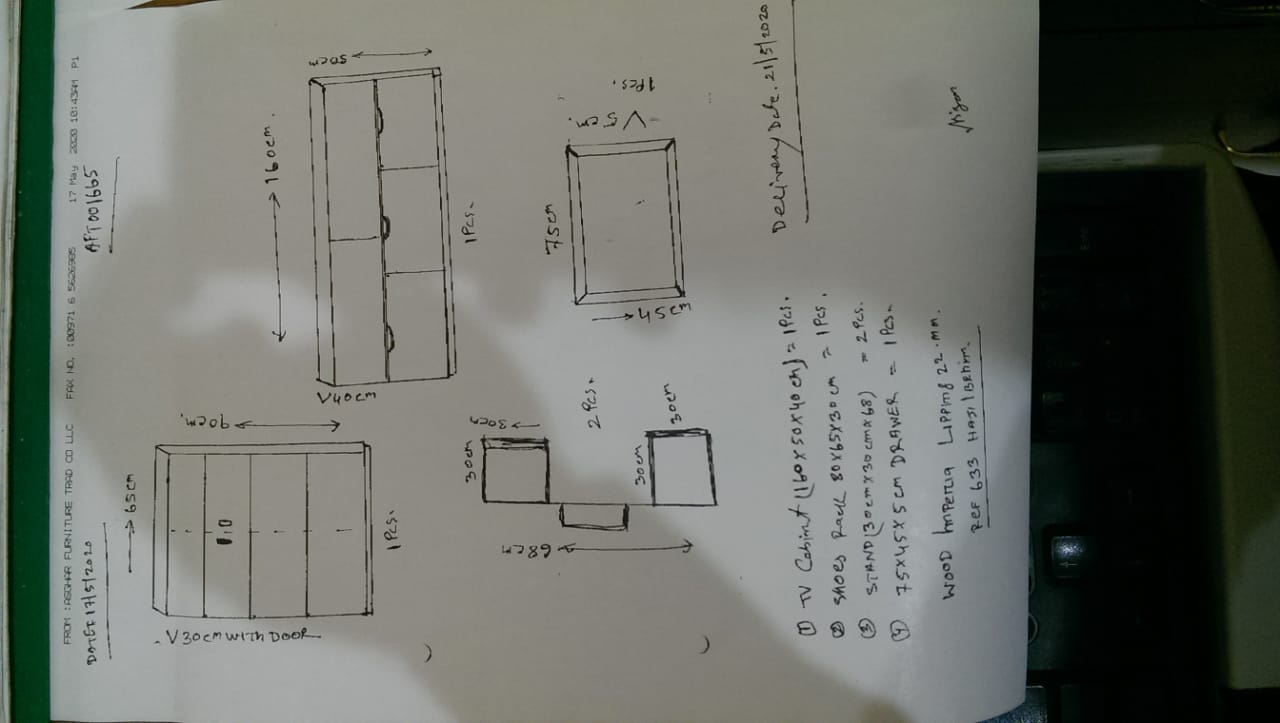 FROM :ASGHAR FURNITURE TRAD CO LLC FAX NO. :00971 6 5626985 17 May 2020 10:43AM P1
DATE: 17/5/2020
AFT001665
65cm
V30cm WITH DOOR
90cm.
1Pcs.
160cm.
V40cm
50cm
1Pcs.
30cm
30cm
68cm
2Pcs.
30cm
30cm
75cm
45cm
V5cm.
1Pcs.
Delivery Date. 21/5/2020
① TV Cabint (160x50x40cm) = 1Pcs.
② SHOES Rack 80x65x30cm = 1Pcs.
③ STAND(30cmx30cmx68) = 2Pcs.
④ 75x45x5cm DRAWER = 1Pcs.
WOOD Imperia LIPPING 22.mm.
REF 633 HAJI IBEHIM.